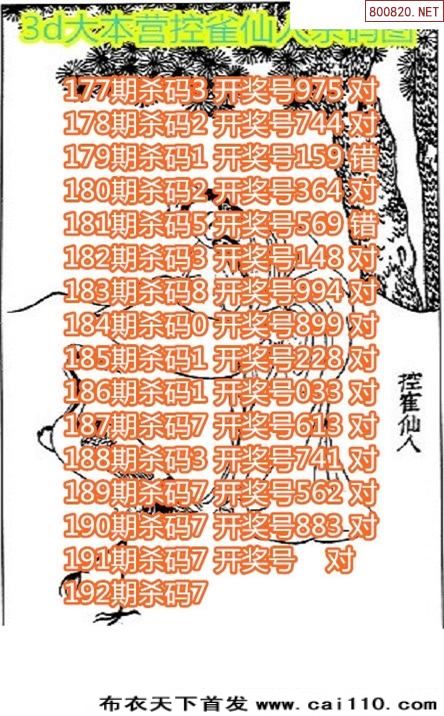 800820.NET
3d大本营控雀仙人杀码图
177期杀码3 开奖号975 对
178期杀码2 开奖号744 对
179期杀码1 开奖号159 错
180期杀码2 开奖号364 对
181期杀码5 开奖号569 错
182期杀码3 开奖号148 对
183期杀码8 开奖号994 对
184期杀码0 开奖号899 对
185期杀码1 开奖号228 对
186期杀码1 开奖号033 对
187期杀码7 开奖号613 对
188期杀码3 开奖号741 对
189期杀码7 开奖号562 对
190期杀码7 开奖号883 对
191期杀码7 开奖号 对
192期杀码7
控雀仙人
布衣天下首发 www.cai110.com